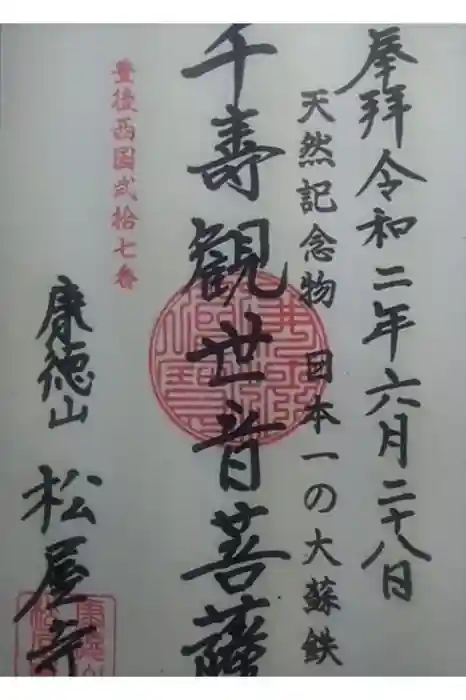 奉拝令和二年六月二十八日
天然記念物 日本一の大蘇鉄
千壽観世音菩薩
豊後西国弐拾七番
康徳山 松屋寺